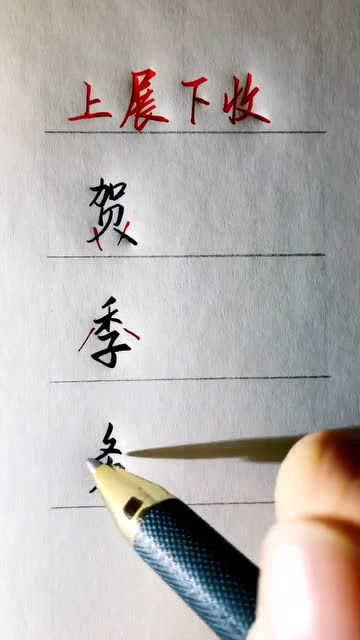 上展下收
贺
季